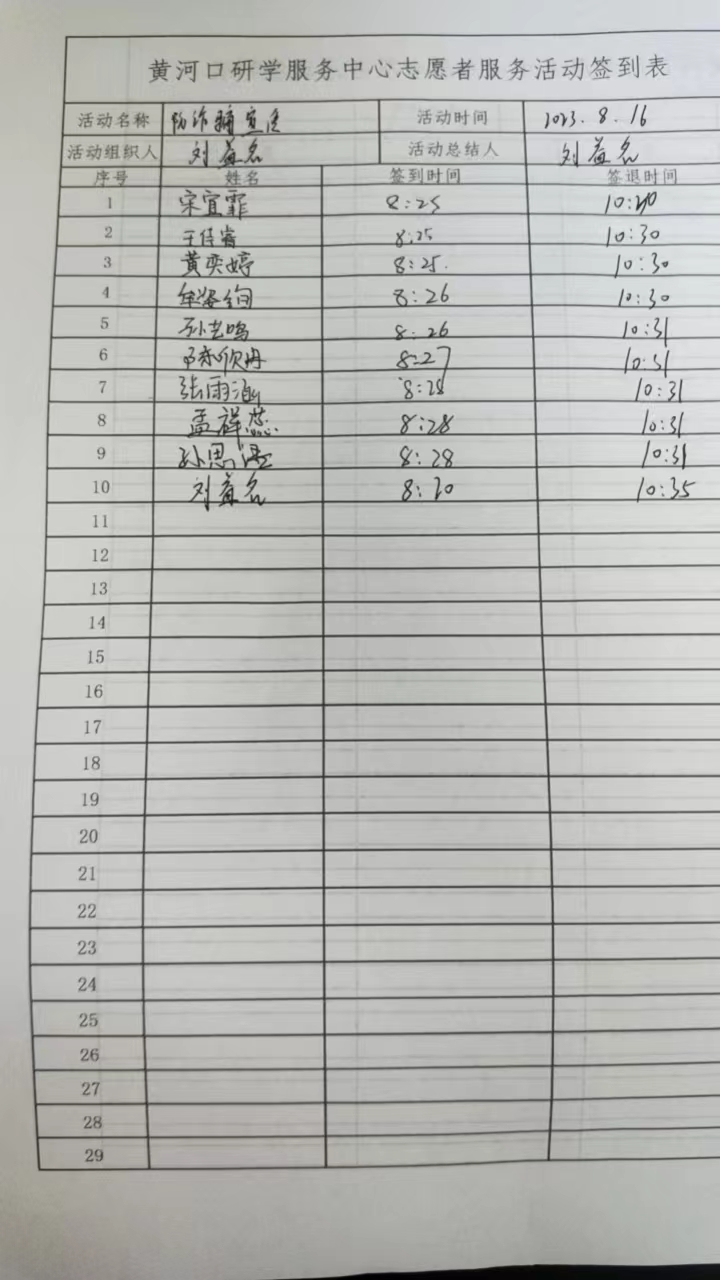 黄河口研学服务中心志愿者服务活动签到表
活动名称 防诈骗宣传 活动时间 2023.8.16
活动组织人 刘益名 活动总结人 刘益名
序号 姓名 签到时间 签退时间
1 宋宜霏 8:25 10:20
2 于佳睿 8:25 10:30
3 黄奕婷 8:25. 10:30
4 牟姿绚 8:26 10:30
5 孙艺鸣 8:26 10:31
6 8:27 10:31
7 张雨涵 8:28 10:31
8 孟祥蕊 8:28 10:31
9 孙思 8:28 10:31
10 刘益名 8:30 10:35
11
12
13
14
15
16
17
18
19
20
21
22
23
24
25
26
27
28
29